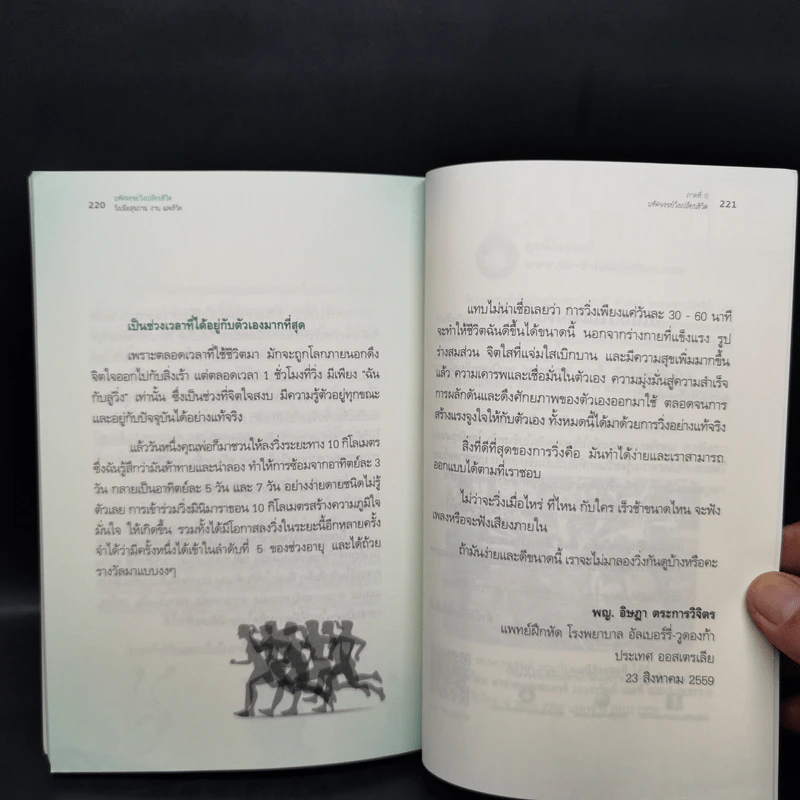 220
มหัศจรรย์วิ่งเปลี่ยนชีวิต
วิ่งเพื่อสุขภาพ งาน และชีวิต
เป็นช่วงเวลาที่ได้อยู่กับตัวเองมากที่สุด
เพราะตลอดเวลาที่ใช้ชีวิตมา มักจะถูกโลกภายนอกดึง
จิตใจออกไปกับสิ่งเร้า แต่ตลอดเวลา 1 ชั่วโมงที่วิ่ง มีเพียง “ฉัน
กับลู่วิ่ง” เท่านั้น ซึ่งเป็นช่วงที่จิตใจสงบ มีความรู้ตัวอยู่ทุกขณะ
และอยู่กับปัจจุบันได้อย่างแท้จริง
แล้ววันหนึ่งคุณพ่อก็มาชวนให้ลงวิ่งระยะทาง 10 กิโลเมตร
ซึ่งฉันรู้สึกว่ามันท้าทายและน่าลอง ทำให้การซ้อมจากอาทิตย์ละ 3
วัน กลายเป็นอาทิตย์ละ 5 วัน และ 7 วัน อย่างง่ายดายชนิดไม่รู้
ตัวเลย การเข้าร่วมวิ่งมินิมาราธอน 10 กิโลเมตรสร้างความภูมิใจ
มั่นใจ ให้เกิดขึ้น รวมทั้งได้มีโอกาสลงวิ่งในระยะนี้อีกหลายครั้ง
จำได้ว่ามีครั้งหนึ่งได้เข้าในลำดับที่ 5 ของช่วงอายุ และได้ถ้วย
รางวัลมาแบบงงๆ
ภาคที่ ๔
มหัศจรรย์วิ่งเปลี่ยนชีวิต
221
แทบไม่น่าเชื่อเลยว่า การวิ่งเพียงแค่วันละ 30 - 60 นาที
จะทำให้ชีวิตฉันดีขึ้นได้ขนาดนี้ นอกจากร่างกายที่แข็งแรง รูป
ร่างสมส่วน จิตใสที่แจ่มใสเบิกบาน และมีความสุขเพิ่มมากขึ้น
แล้ว ความเคารพและเชื่อมั่นในตัวเอง ความมุ่งมั่นสู่ความสำเร็จ
การผลักดันและดึงศักยภาพของตัวเองออกมาใช้ ตลอดจนการ
สร้างแรงจูงใจให้กับตัวเอง ทั้งหมดนี้ได้มาด้วยการวิ่งอย่างแท้จริง
สิ่งที่ดีที่สุดของการวิ่งคือ มันทำได้ง่ายและเราสามารถ
ออกแบบได้ตามที่เราชอบ
ไม่ว่าจะวิ่งเมื่อไหร่ ที่ไหน กับใคร เร็วช้าขนาดไหน จะฟัง
เพลงหรือจะฟังเสียงภายใน
ถ้ามันง่ายและดีขนาดนี้ เราจะไม่มาลองวิ่งกันดูบ้างหรือคะ
พญ. อิษฎา ตระการวิจิตร
แพทย์ฝึกหัด โรงพยาบาล อัลเบอร์รี่-วูดองก้า
ประเทศ ออสเตรเลีย
23 สิงหาคม 2559